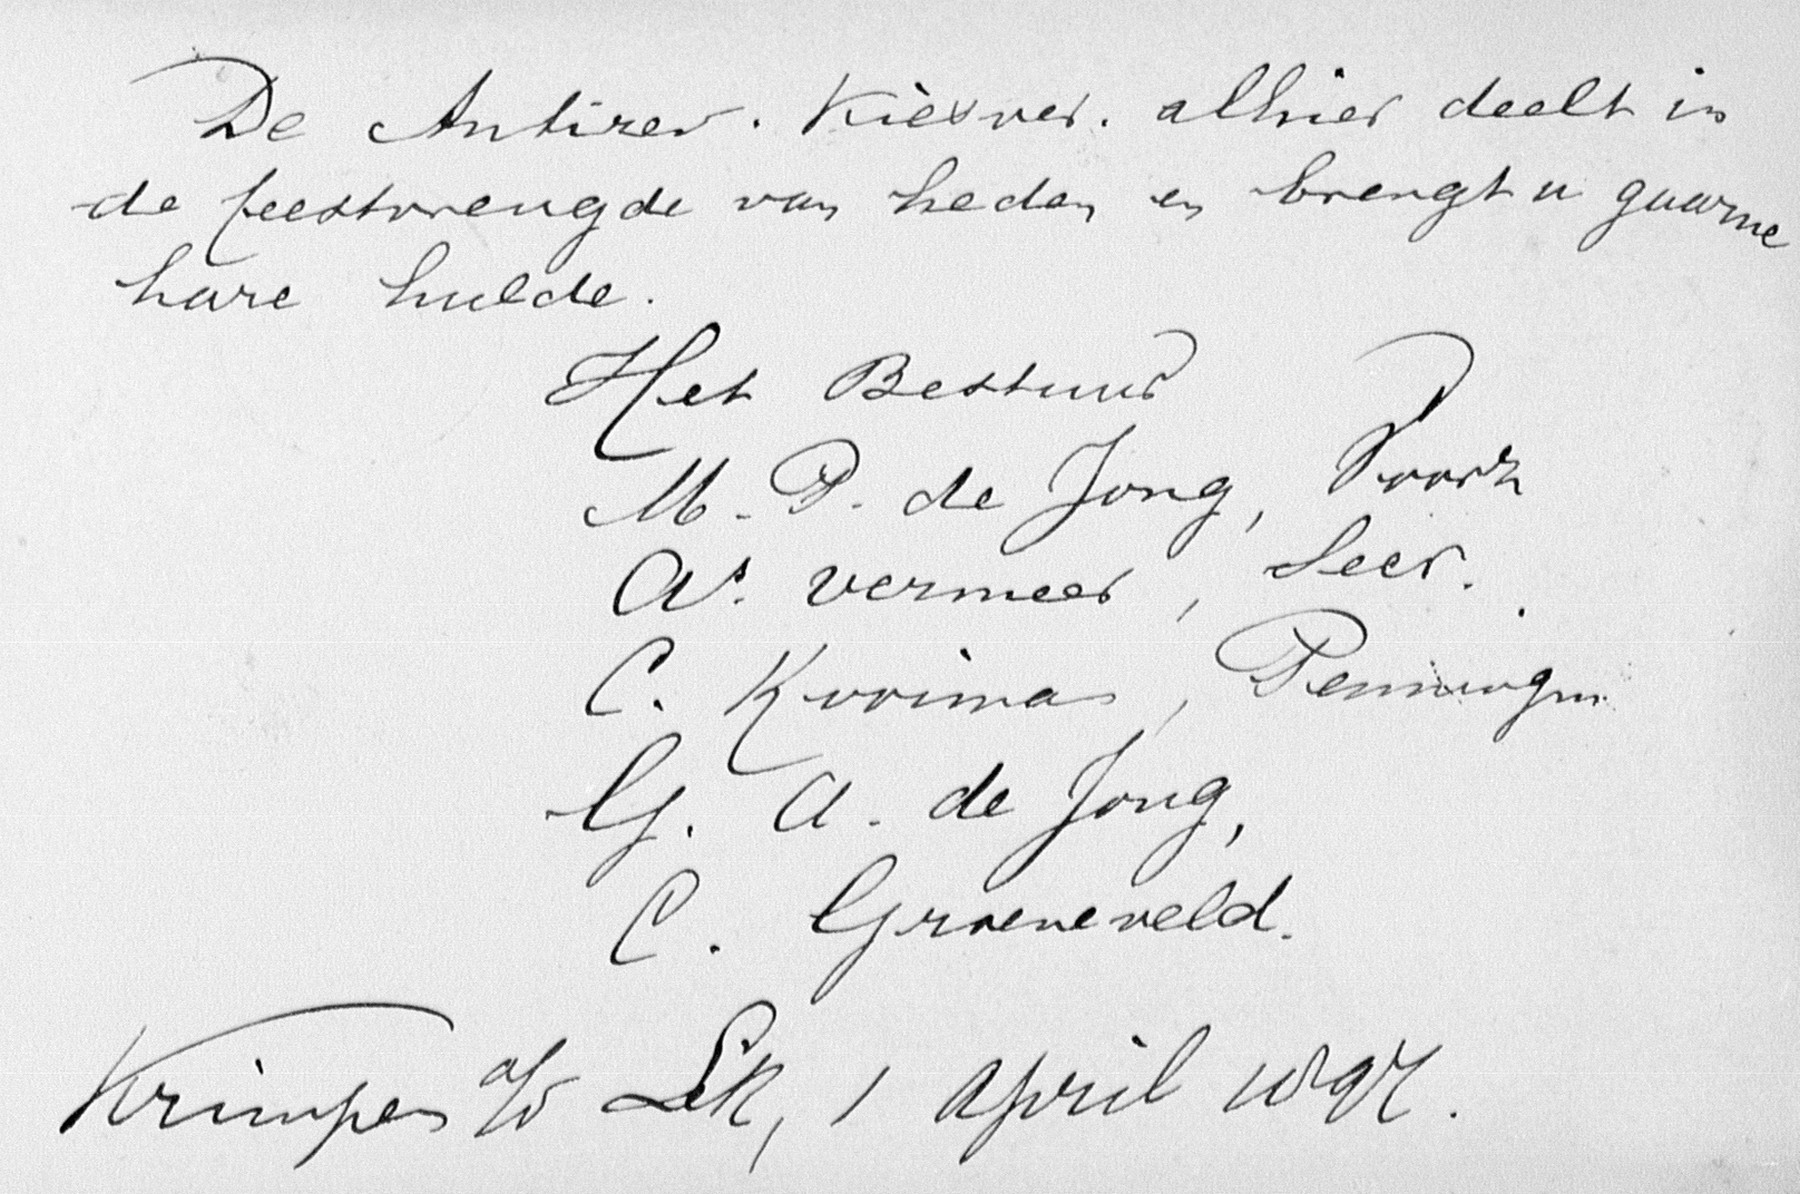 De Antirev. Kiesver. alhier deelt in
de feestvreugde van heden en brengt u gaarne
hare hulde.
Het Bestuur
M. P. de Jong, Voorz
As. Vermeer, Secr.
C. Kooiman, Penningm.
G. A. de Jong,
C. Groeneveld.
Krimpen a/d Lek, 1 April 1897.